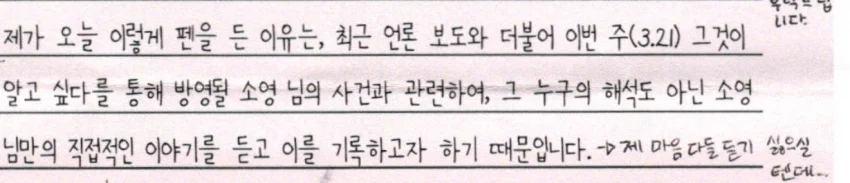 니다.
제가 오늘 이렇게 펜을 든 이유는, 최근 언론 보도와 더불어 이번 주(3.21) 그것이
알고 싶다를 통해 방영될 소영 님의 사건과 관련하여, 그 누구의 해석도 아닌 소영
님만의 직접적인 이야기를 듣고 이를 기록하고자 하기 때문입니다. → 제 마음 다들 듣기 싫으실
텐데..